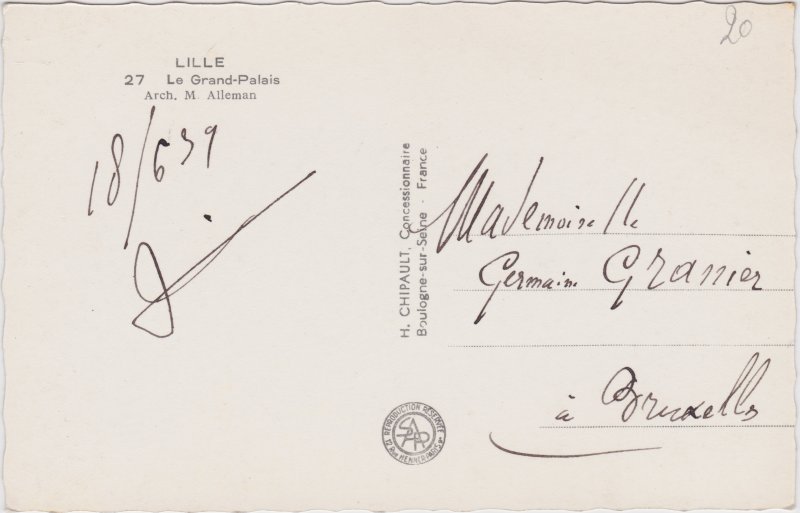 20
LILLE
27 Le Grand-Palais
Arch. M. Alleman
18/6 39
H. CHIPAULT, Concessionnaire
Boulogne-sur-Seine - France
Mademoiselle
Germaine Granier
à Bruxelles
REPRODUCTION RÉSERVÉE
SAPR
12 Rue HENNER PARIS 9e